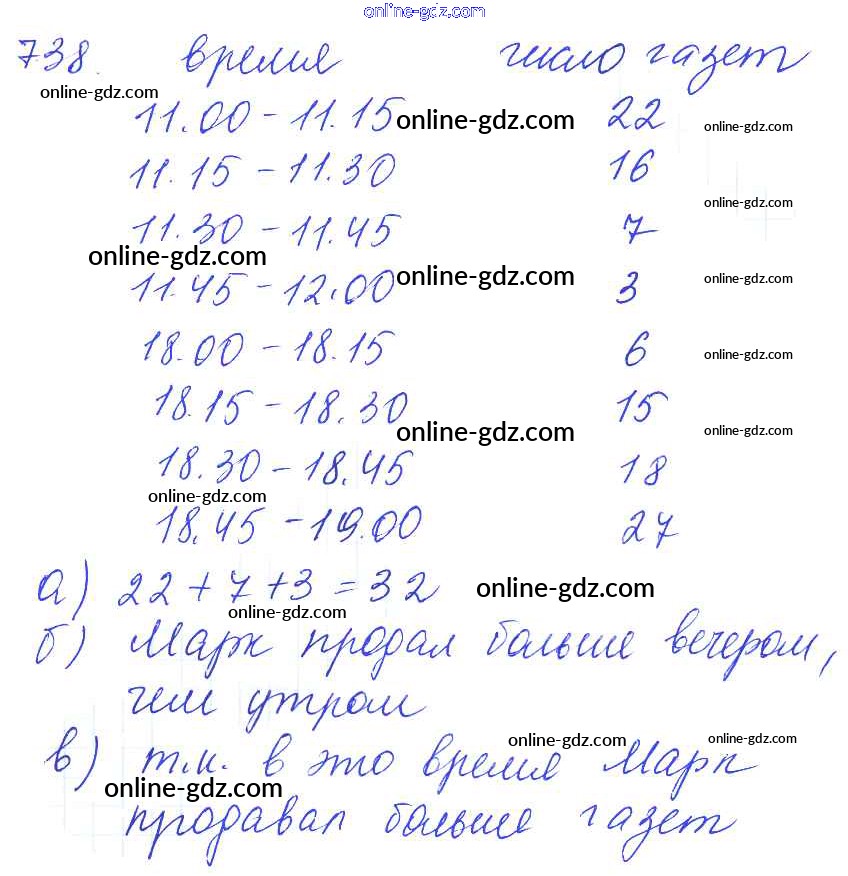 online-gdz.com
738. время число газет
online-gdz.com
11.00 - 11.15 22
online-gdz.com online-gdz.com
11.15 - 11.30 16
online-gdz.com
11.30 - 11.45 7
online-gdz.com online-gdz.com online-gdz.com
11.45 - 12.00 3
18.00 - 18.15 6
online-gdz.com
18.15 - 18.30 15
online-gdz.com online-gdz.com
18.30 - 18.45 18
online-gdz.com
18.45 - 19.00 27
а) 22 + 7 + 3 = 32 online-gdz.com
online-gdz.com
б) Марк продал больше вечером,
чем утром
online-gdz.com online-gdz.com
в) т.к. в это время Марк
online-gdz.com
продавал больше газет